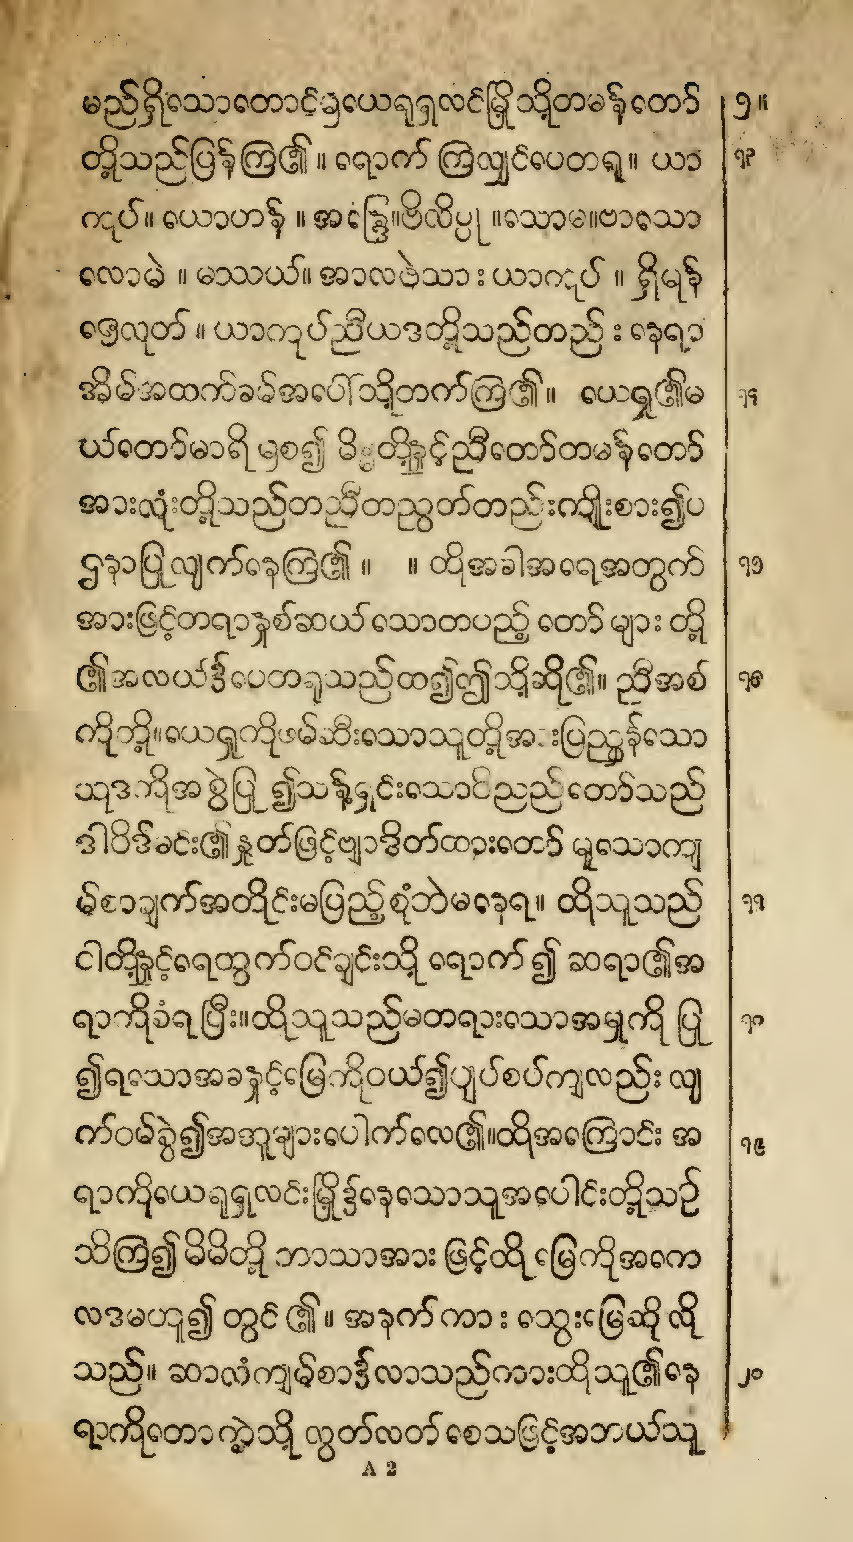 မည်ရှိသောတောင်၌ယေရုရှလင်မြို့သို့တမန်တော် ၅။
တို့သည်ပြန်ကြ၏။ ရောက် ကြလျှင်ပေတရု။ ယာ ၁၃
ကုပ်။ ယောဟန် ။ အန္ဒြေ။ဗိလိပ္ပု ။သောမ။ဗာသော
လောမဲ ။ မဿယ်။ အာလဖဲသား ယာကုပ် ။ ရှိမုန်
ဇေလုတ် ။ ယာကုပ်ညီယုဒတို့သည်တည် း နေရာ
အိမ်အထက်ခမ်အပေါ်သို့တက်ကြ၏။ ယေရှု၏မ ၁၄
ယ်တော်မာရိ မှစ၍ မိ့မ္မတို့နှင့်ညီတော်တမန်တော်
အားလုံးတို့သည်တညီတညွတ်တည်းကျိုးစား၍ပ
ဌနာပြုလျက်နေကြ၏ ။ ။ ထိုအခါအရေအတွက် ၁၅
အားဖြင့်တရာနှစ်ဆယ်သောတပည့် တော် များ တို့
၏အလယ်၌ပေတရုသည်ထ၍ဤသို့ဆို၏။ ညီအစ် ၁၆
ကိုတို့။ယေရှုကိုဖမ်ဆီးသောသူတို့အားပြညွှန်သော
ယုဒကိုအစွဲပြု ၍သန့်ရှင်းသောဝိညည်တော်သည်
ဒါဝိဒ်ခင်း၏နှုတ်ဖြင့်ဗျာဒိတ်ထားတော် မူသောကျ
မ်စာချက်အတိုင်းမပြည့်စုံဘဲမနေရ။ ထိုသူသည် ၁၇
ငါတို့နှင့်ရေတွက်ဝင်ချင်းသို့ ရောက် ၍ ဆရာ၏အ
ရာကိုခံရ ပြီး။ထိုသူသည်မတရားသောအမှုကို ပြု ၁၈
၍ရသောအခနှင့်မြေကိုဝယ်၍ပျုပ်စပ်ကျလည်း လျ
က်ဝမ်ခွဲ၍အအူများပေါက်လေ၏။ထိုအကြောင်း အ ၁၉
ရာကိုယေရုရှလင်းမြို့၌နေသောသူအပေါင်းတို့သဉ်
သိကြ၍ မိမိတို့ ဘာသာအား ဖြင့်ထို မြေကိုအကေ
လဒမဟူ၍ တွင် ၏။ အနက် ကား သွေးမြေဆို လို
သည်။ ဆာလံကျမ်စာ၌လာသည်ကားထိုသူ၏နေ ၂၀
ရာကိုတောကဲ့သို့ လွတ်လတ် စေသဖြင့်အဘယ်သူ
A 2